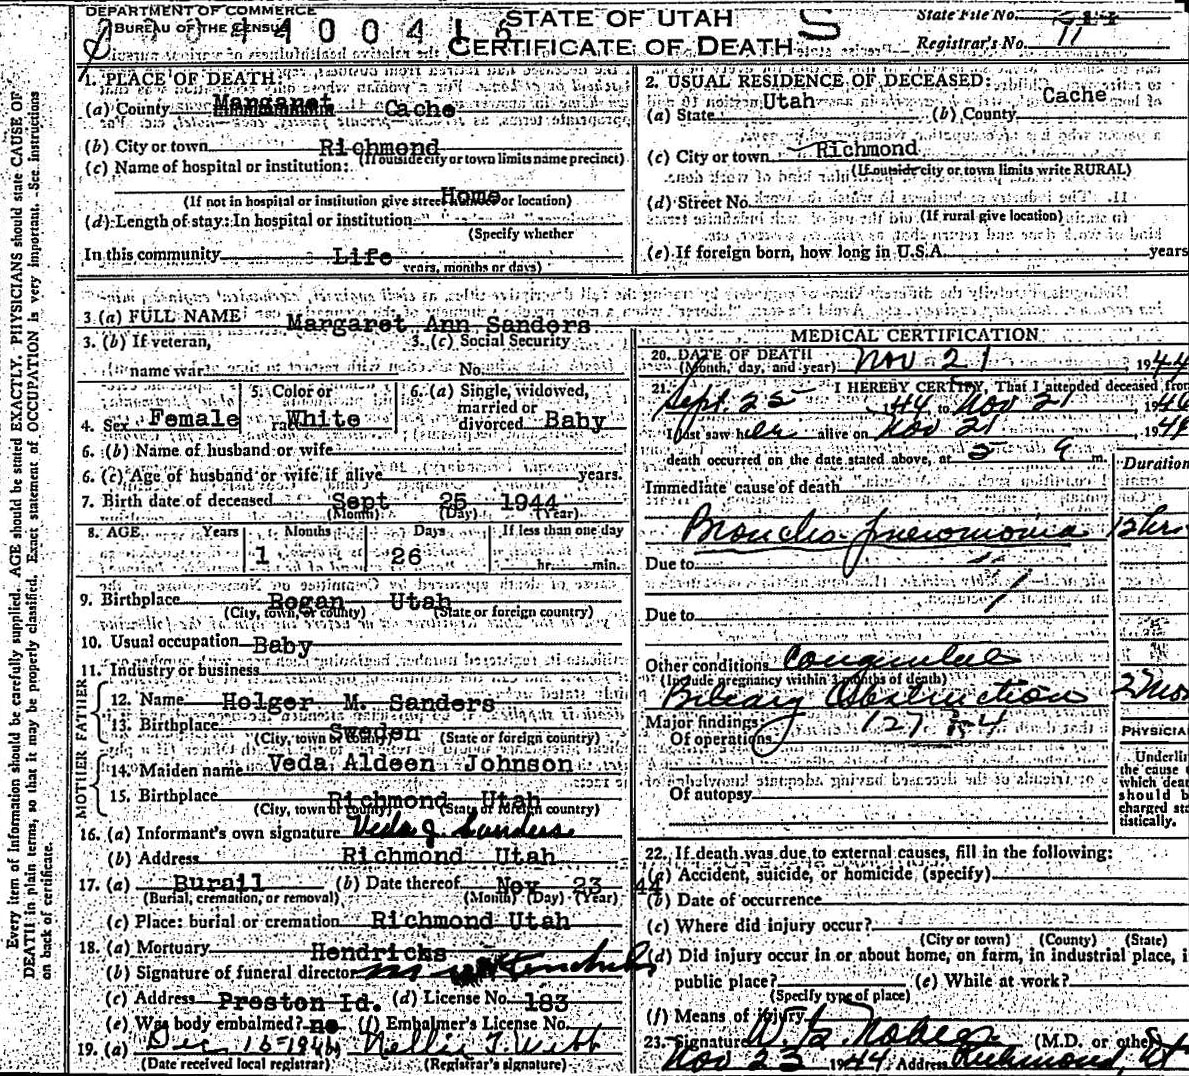 DEPARTMENT OF COMMERCE
BUREAU OF THE CENSUS
STATE OF UTAH
CERTIFICATE OF DEATH
S
State File No.
Registrar's No. 11
Every item of information should be carefully supplied. AGE should be stated EXACTLY. PHYSICIANS should state CAUSE OF
DEATH in plain terms, so that it may be properly classified. Exact statement of OCCUPATION is very important. See instructions
on back of certificate.
1. PLACE OF DEATH:
(a) County Margaret Cache
(b) City or town Richmond
(If outside city or town limits name precinct)
(c) Name of hospital or institution:
Home
(If not in hospital or institution give street number or location)
(d) Length of stay: In hospital or institution
(Specify whether
In this community Life
years, months or days)
2. USUAL RESIDENCE OF DECEASED:
(a) State Utah (b) County Cache
(c) City or town Richmond
(If outside city or town limits write RURAL)
(d) Street No.
(If rural give location)
(e) If foreign born, how long in U.S.A. years
3. (a) FULL NAME Margaret Ann Sanders
3. (b) If veteran, 3. (c) Social Security
name war No.
4. Sex Female 5. Color or race White 6. (a) Single, widowed, married or divorced Baby
6. (b) Name of husband or wife
6. (c) Age of husband or wife if alive years.
7. Birth date of deceased Sept 25 1944
(Month) (Day) (Year)
8. AGE Years Months Days If less than one day
1 26 hr. min.
9. Birthplace Rogan Utah
(City, town, or county) (State or foreign country)
10. Usual occupation Baby
11. Industry or business
FATHER
12. Name Holger M. Sanders
13. Birthplace Sweden
(City, town or county) (State or foreign country)
MOTHER
14. Maiden name Veda Aldeen Johnson
15. Birthplace Richmond Utah
(City, town or county) (State or foreign country)
16. (a) Informant's own signature Veda J. Sanders
(b) Address Richmond Utah
17. (a) Burail (b) Date thereof Nov 23 44
(Burial, cremation, or removal) (Month) (Day) (Year)
(c) Place: burial or cremation Richmond Utah
18. (a) Mortuary Hendricks
(b) Signature of funeral director
(c) Address Preston Id. (d) License No. 183
(e) Was body embalmed? no (f) Embalmer's License No.
19. (a) Dec 15-1944 Nellie T. Webb
(Date received local registrar) (Registrar's signature)
MEDICAL CERTIFICATION
20. DATE OF DEATH Nov 21 1944
(Month, day, and year)
21. I HEREBY CERTIFY, That I attended deceased from
Sept. 25 1944 to Nov 21, 194
I last saw her alive on Nov 21, 194
death occurred on the date stated above, at 5 m.
Duration
Immediate cause of death
Broncho-pneumonia 12 hrs
Due to
Due to
Other conditions Congenital
(Include pregnancy within 3 months of death)
Biliary Obstruction 2 mo
Major findings:
Of operations
Of autopsy
PHYSICIA
Underlin
the cause
which dea
should b
charged sta
tistically.
22. If death was due to external causes, fill in the following:
(a) Accident, suicide, or homicide (specify)
(b) Date of occurrence
(c) Where did injury occur?
(City or town) (County) (State)
(d) Did injury occur in or about home, on farm, in industrial place, i
public place? (e) While at work?
(Specify type of place)
(f) Means of injury
23. Signature (M.D. or other)
Nov 23 1944 Address Richmond, Ut